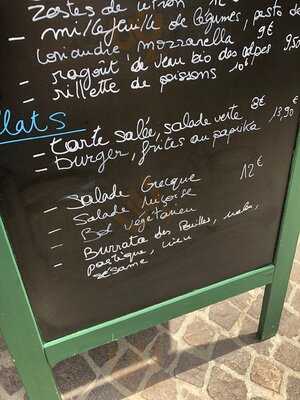 zestes de citron 12€
- millefeuille de légumes, pesto de
coriandre mozzarella 9€
- ragoût de veau bio des alpes 9,50
- rillette de poissons 10€
Plats
- tarte salée, salade verte 8€
- burger, frites au paprika 13,90
- Salade Grecque
- Salade Niçoise 12€
- Bol végétarien
- Burrata des Pouilles, melon,
pastèque,
sésame